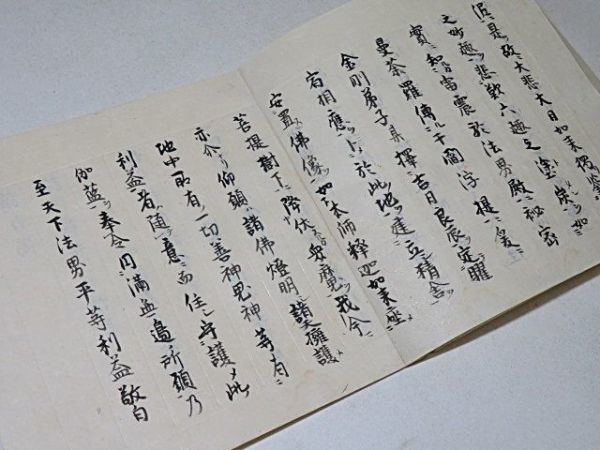 是故大悲大日如来獨
之妙趣悲歎六趣之塗炭如
實知自雷震於法界殿秘密
曼荼羅傳于閻浮提爰
金剛弟子某擇吉日良辰定曜
宿相應卜於此地建立精舎
安置佛像如大師釋迦如来座
菩提樹下降伏衆魔我今
亦尓仰願諸佛證明諸天擁護
地中所有一切善神鬼神等有
利益者随意而住守護此
伽藍奉令円満無邊所願乃
至天下法界平等利益敬白